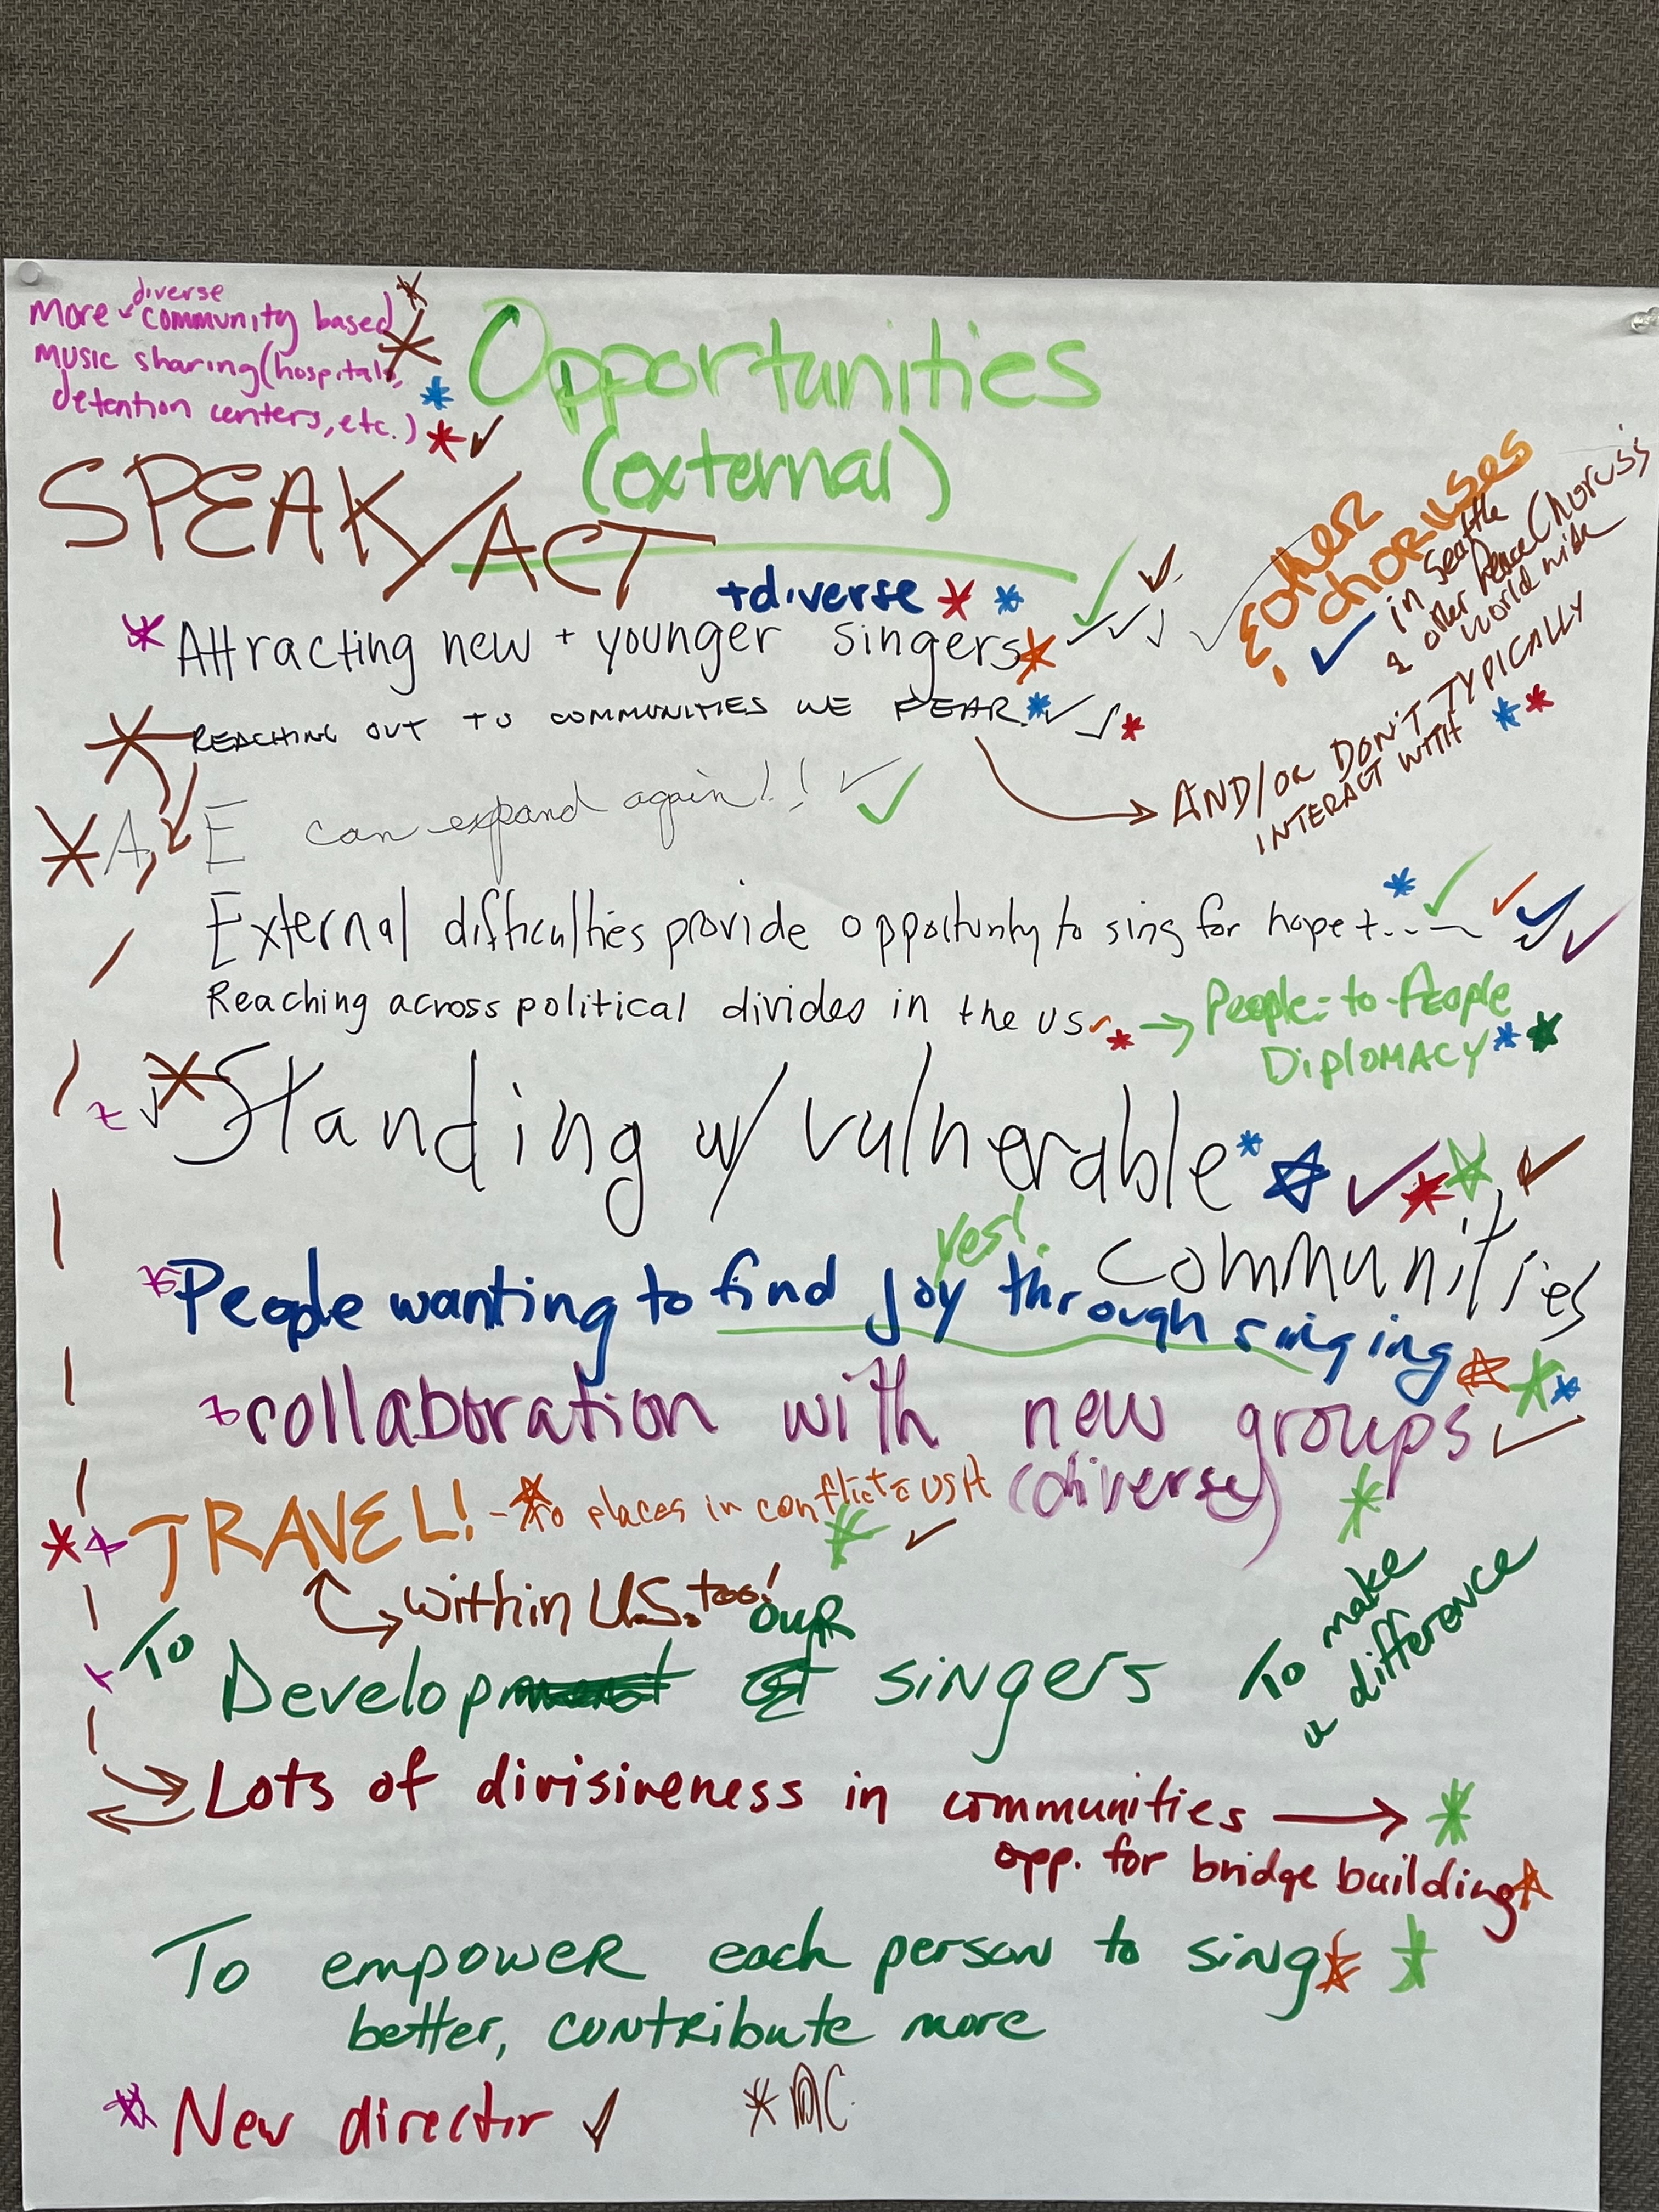 diverse
More community based
music sharing (hospitals,
detention centers, etc.)
Opportunities
(external)
SPEAK/ACT
+ diverse
Attracting new + younger singers
& other
choruses
in Seattle
& other Peace Chorus's
world wide
REACHING OUT TO COMMUNITIES WE FEAR.
AND/or DON'T TYPICALLY
INTERACT WITH
A, E can expand again!!
External difficulties provide opportunity to sing for hope +...
Reaching across political divides in the US
→ People-to-People
Diplomacy
Standing w/ vulnerable
communities
yes!
People wanting to find joy through singing
collaboration with new groups
(diverse)
TRAVEL! - to places in conflict c̄ USA
within U.S. too!
our
To Develop singers To make
a difference
Lots of divisiveness in communities →
opp. for bridge building
To empower each person to sing
better, contribute more
New director